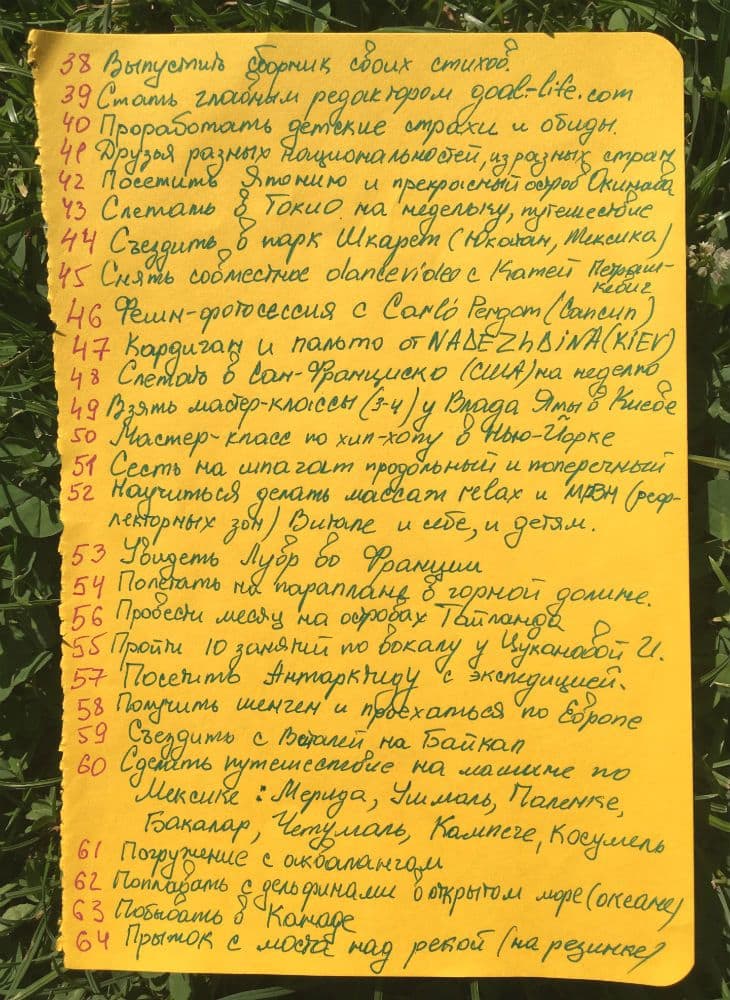 38 Выпустить сборник своих стихов.
39 Стать главным редактором goal-life.com
40 Проработать детские страхи и обиды.
41 Друзья разных национальностей, из разных стран
42 Посетить Японию и прекрасный остров Окинава
43 Слетать в Токио на недельку, путешествие
44 Съездить в парк Шкарет (Юкатан, Мексика)
45 Снять совместное dancevideo с Катей Петраш-
кевич
46 Фешн-фотосессия с Carló Pergam (Сапсип)
47 Кардиган и пальто от NADEZhDiNA (KiEV)
48 Слетать в Сан-Франциско (США) на неделю
49 Взять мастер-классы (3-4) у Влада Ямы в Киеве
50 Мастер-класс по хип-хопу в Нью-Йорке
51 Сесть на шпагат продольный и поперечный
52 Научиться делать массаж relax и МРЗН (реф-
лекторных зон) Витале и себе, и детям.
53 Увидеть Лувр во Франции
54 Полетать на параплане в горной долине.
56 Провести месяц на островах Тайланда
55 Пройти 10 занятий по вокалу у Цукановой И.
57 Посетить Антарктиду с экспедицией.
58 Получить шенген и проехаться по Европе
59 Съездить с Виталей на Байкал
60 Сделать путешествие на машине по
Мексике: Мерида, Ушмаль, Паленке,
Бакалар, Четумаль, Кампече, Косумель
61 Погружение с аквалангом
62 Поплавать с дельфинами в открытом море (океане)
63 Побывать в Канаде
64 Прыжок с моста над рекой (на резинке)